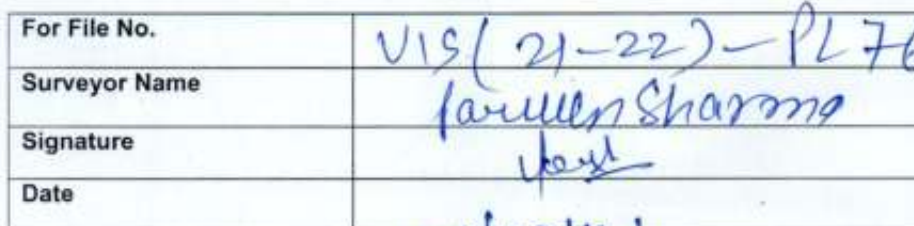 For File No. VIS( 21-22)-PL76
Surveyor Name Parveen Sharma
Signature
Date